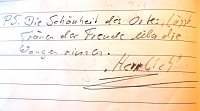 P.S. Die Schönheit des Ortes, lässt
Tränen der Freude über die
Wangen rinnen.
Herrlich!